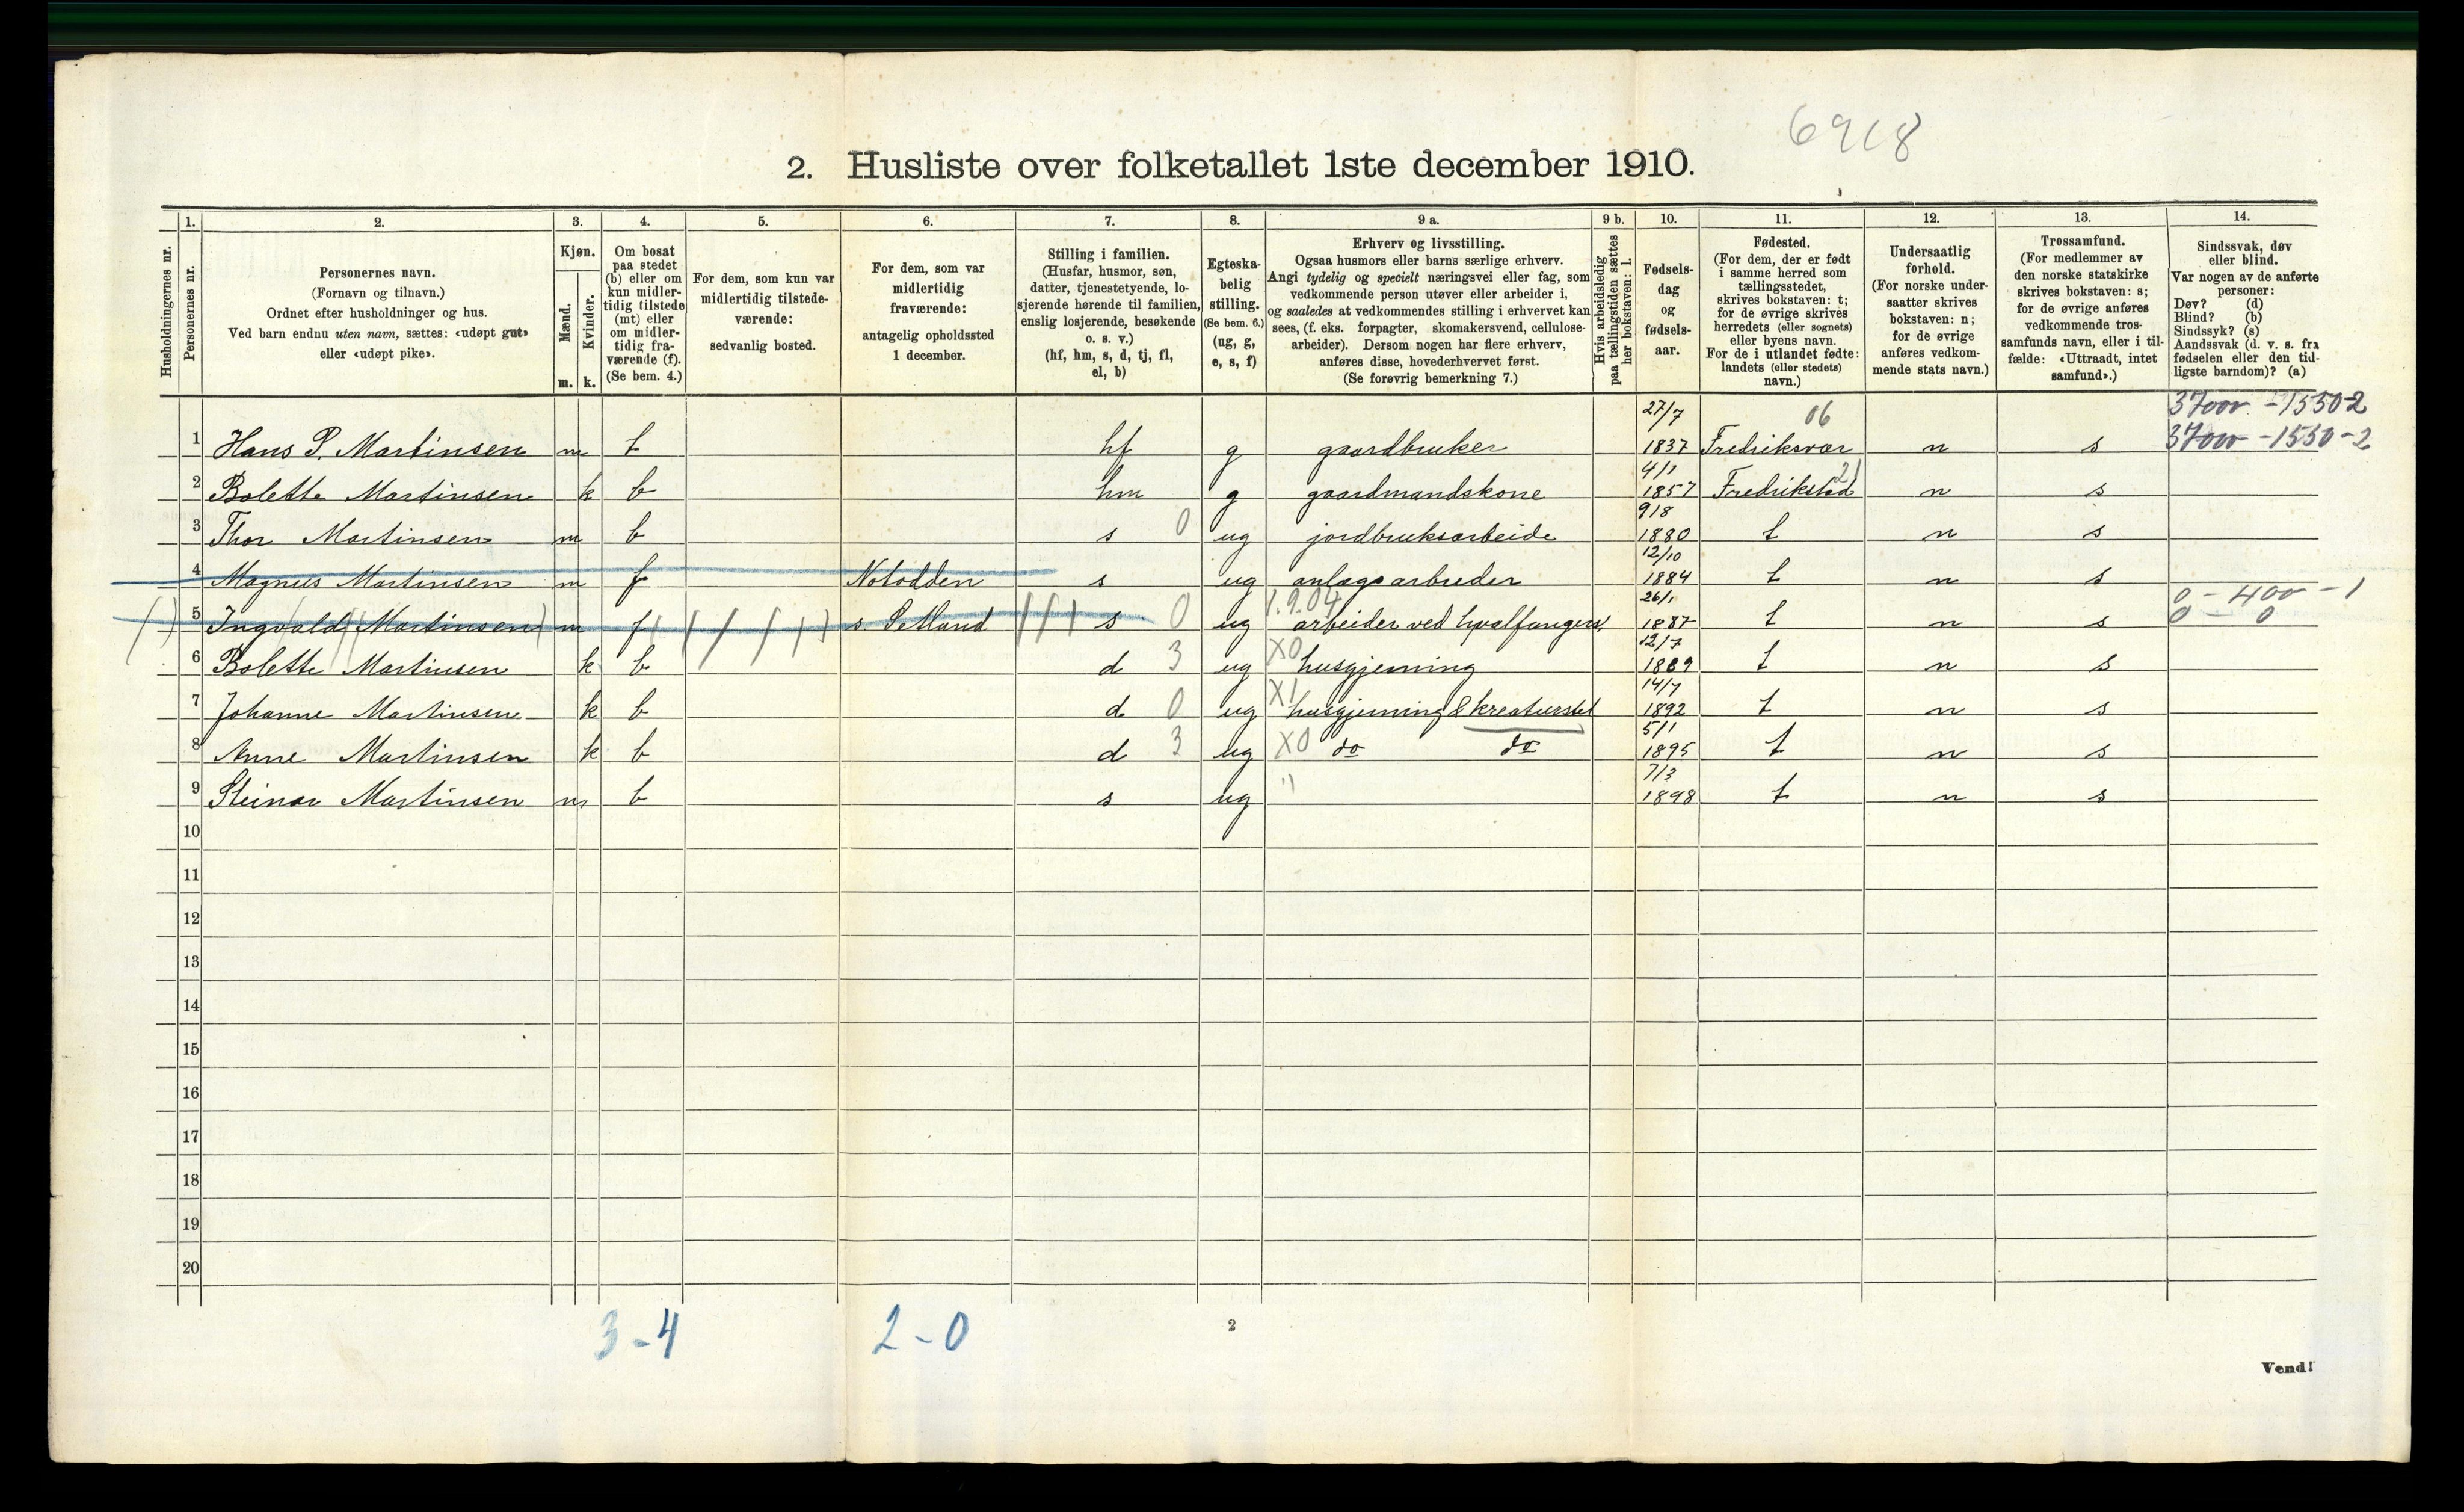 6918
2. Husliste over folketallet 1ste december 1910.
1. 2. 3. 4. 5. 6. 7. 8. 9 a. 9 b. 10. 11. 12. 13. 14.
Husholdningernes nr.
Personernes nr.
Personernes navn.
(Fornavn og tilnavn.)
Ordnet efter husholdninger og hus.
Ved barn endnu uten navn, sættes: «udøpt gut»
eller «udøpt pike».
Kjøn.
Mænd.
Kvinder.
m. k.
Om bosat
paa stedet
(b) eller om
kun midler-
tidig tilstede
(mt) eller
om midler-
tidig fra-
værende (f).
(Se bem. 4.)
For dem, som kun var
midlertidig tilstede-
værende:
sedvanlig bosted.
For dem, som var
midlertidig
fraværende:
antagelig opholdssted
1 december.
Stilling i familien.
(Husfar, husmor, søn,
datter, tjenestetyende, lo-
sjerende hørende til familien,
enslig losjerende, besøkende
o. s. v.)
(hf, hm, s, d, tj, fl,
el, b)
Egteska-
belig
stilling.
(Se bem. 6.)
(ug, g,
e, s, f)
Erhverv og livsstilling.
Ogsaa husmors eller barns særlige erhverv.
Angi tydelig og specielt næringsvei eller fag, som
vedkommende person utøver eller arbeider i,
og saaledes at vedkommendes stilling i erhvervet kan
sees, (f. eks. forpagter, skomakersvend, cellulose-
arbeider). Dersom nogen har flere erhverv,
anføres disse, hovederhvervet først.
(Se forøvrig bemerkning 7.)
Hvis arbeidsledig
paa tællingstiden sættes
her bokstaven: l.
Fødsels-
dag
og
fødsels-
aar.
Fødested.
(For dem, der er født
i samme herred som
tællingsstedet,
skrives bokstaven: t;
for de øvrige skrives
herredets (eller sognets)
eller byens navn.
For de i utlandet fødte:
landets (eller stedets)
navn.)
Undersaatlig
forhold.
(For norske under-
saatter skrives
bokstaven: n;
for de øvrige
anføres vedkom-
mende stats navn.)
Trossamfund.
(For medlemmer av
den norske statskirke
skrives bokstaven: s;
for de øvrige anføres
vedkommende tros-
samfunds navn, eller i til-
fælde: «Uttraadt, intet
samfund».)
Sindssvak, døv
eller blind.
Var nogen av de anførte
personer:
Døv? (d)
Blind? (b)
Sindssyk? (s)
Aandssvak (d. v. s. fra
fødselen eller den tid-
ligste barndom)? (a)
27/7 06 3700 - 1550-2
1 Hans P. Martinsen m b hf g gaardbruker 1837 Fredriksvær n s 3700 - 1550-2
4/1 21
2 Bolette Martinsen k b hm g gaardmandskone 1857 Fredrikstad n s
9/8
3 Thor Martinsen m b s 0 ug jordbruksarbeide 1880 t n s
12/10
4 Magnus Martinsen m f Notodden s ug anlægsarbeider 1884 t n s
1.9.04 26/1 0 - 400 - 1
5 Ingvald Martinsen m f s. Setland s 0 ug arbeider ved hvalfangers 1887 t n s 0 - 0
12/7
6 Bolette Martinsen k b d 3 ug X0 husgjerning 1889 t n s
14/7
7 Johanne Martinsen k b d 0 ug X1 husgjerning & kreaturstel 1892 t n s
5/1
8 Anne Martinsen k b d 3 ug X0 do do 1895 t n s
7/3
9 Steinar Martinsen m b s ug " 1898 t n s
10
11
12
13
14
15
16
17
18
19
20
3-4 2-0
2
Vend!